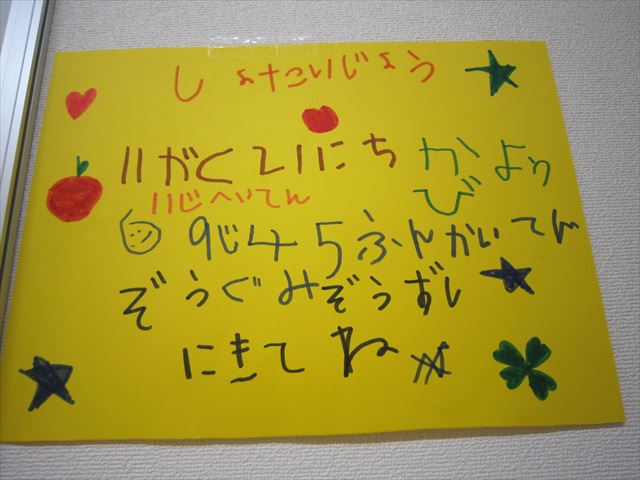 しょたいじょう
11がく21にち かようび
11じへいてん
9じ45ふんかいてん
ぞうぐみぞうずし
にきてね